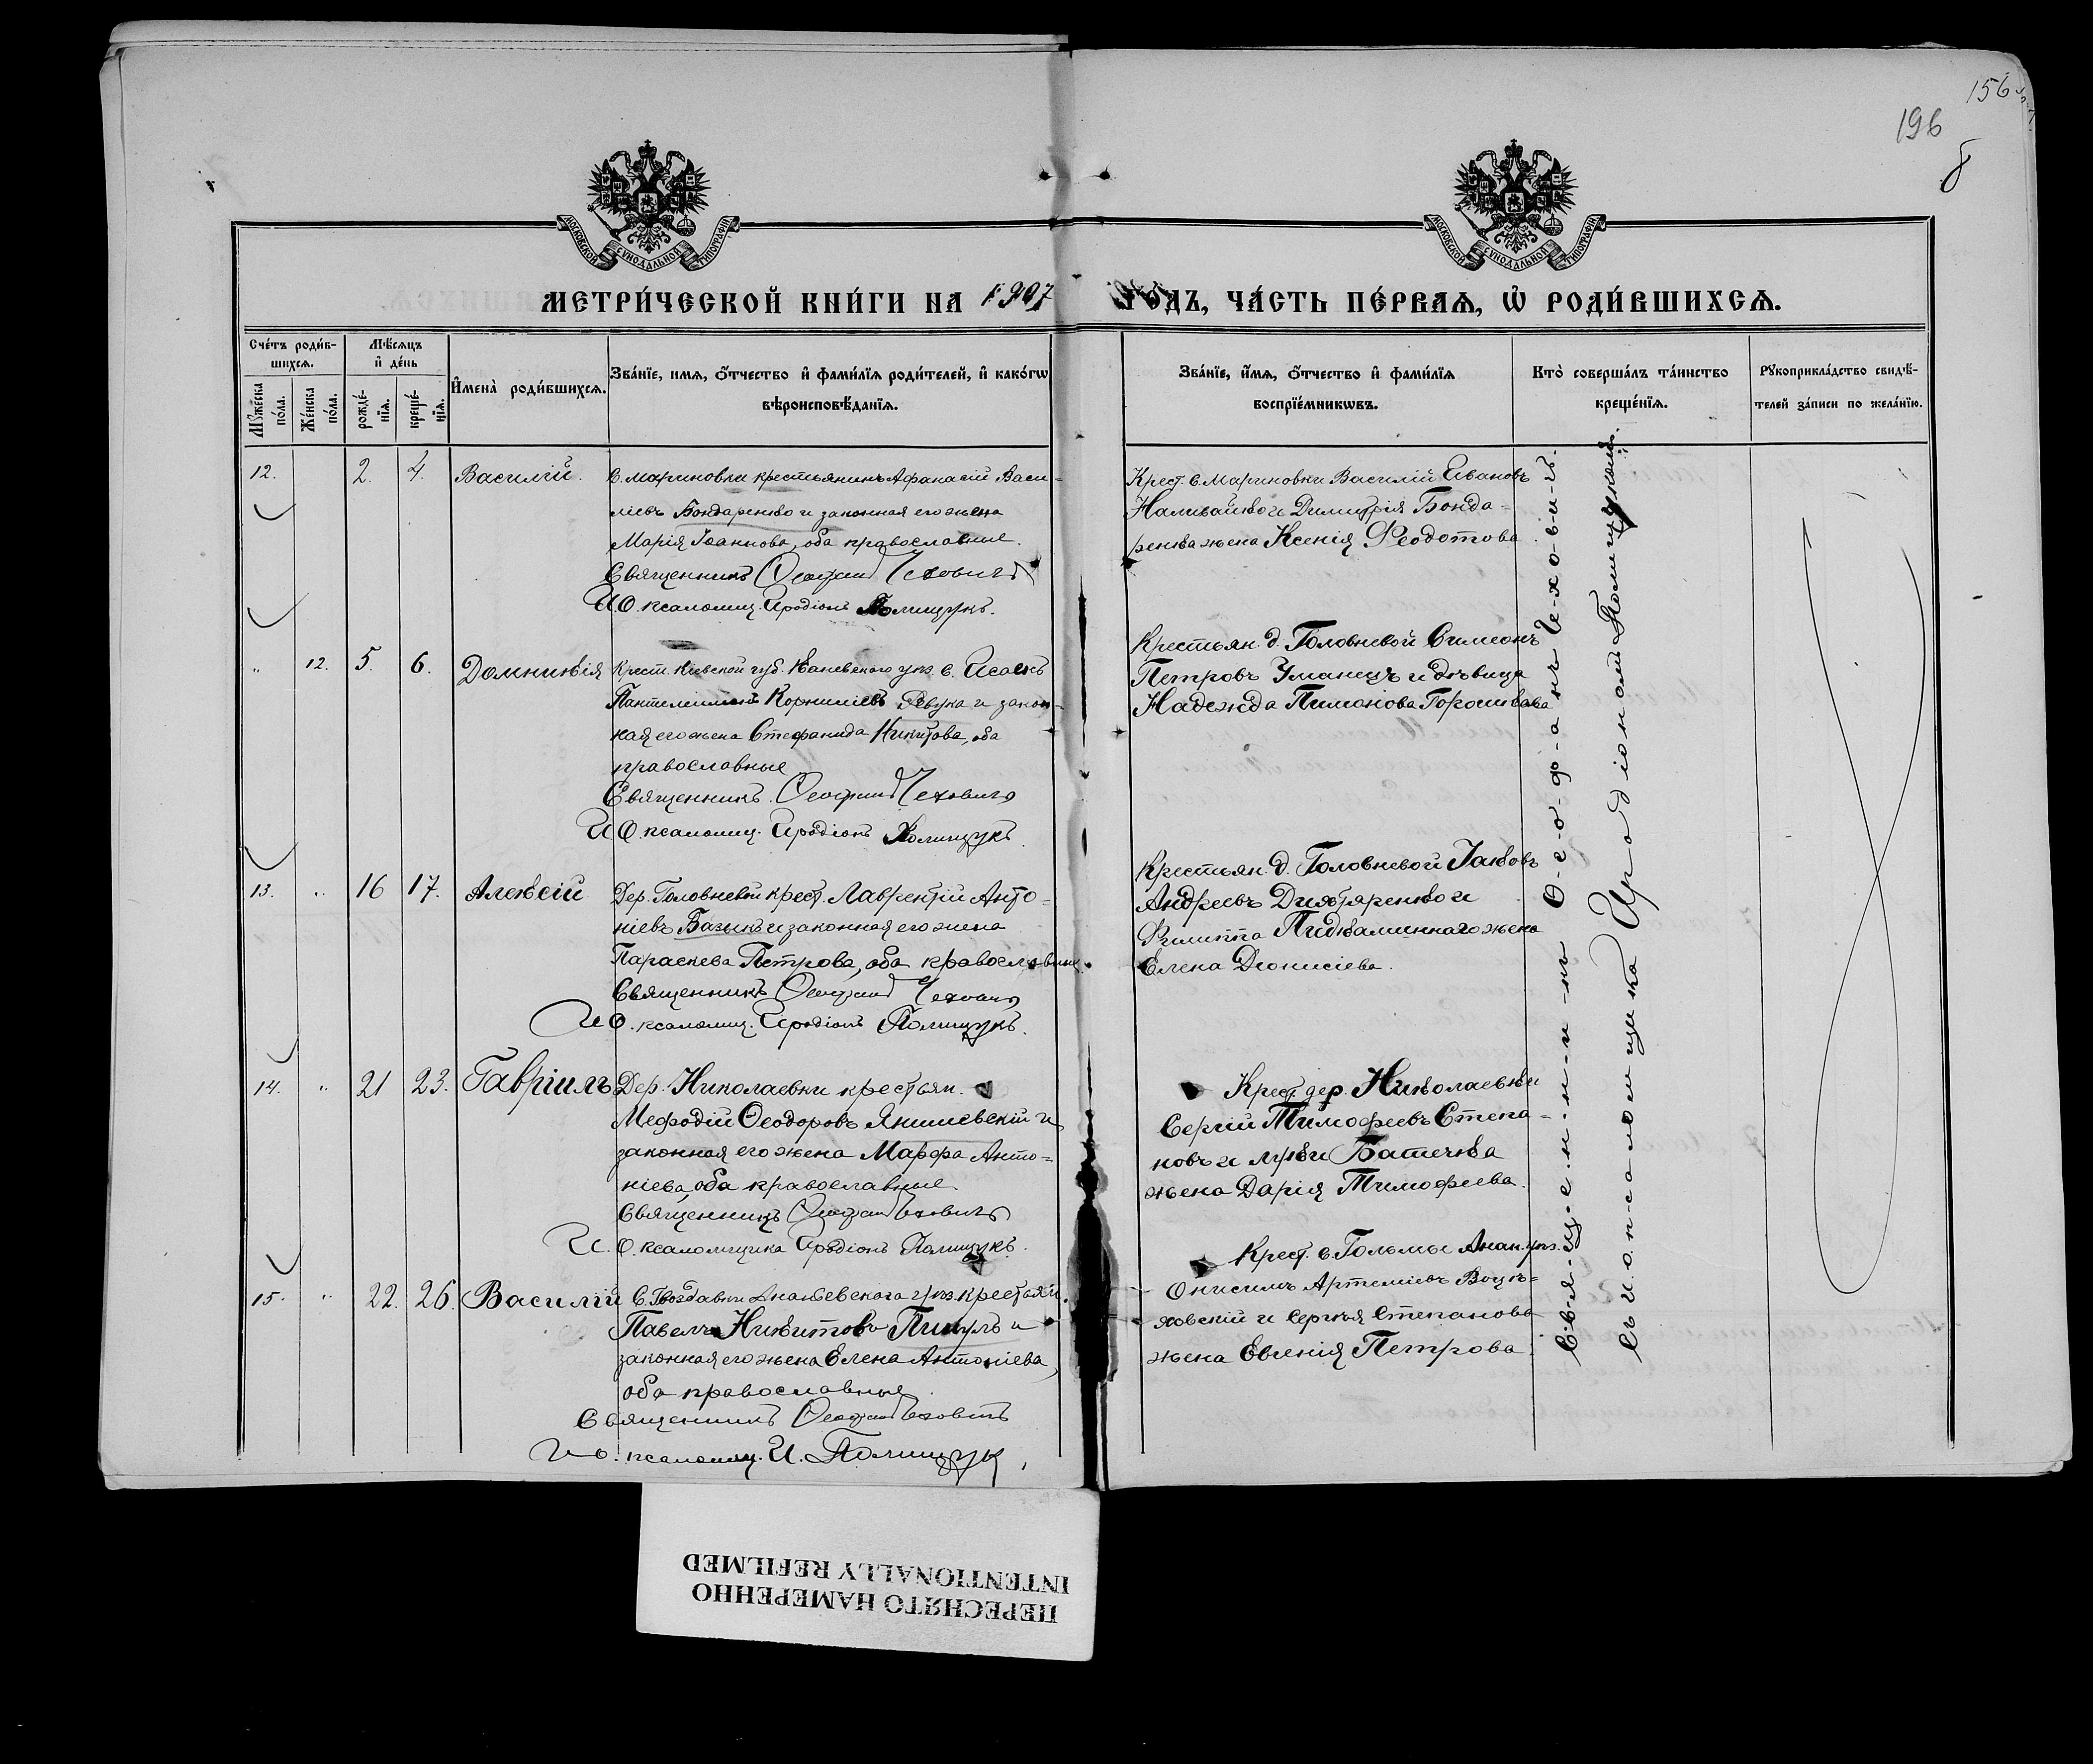 156
196
МОСКОВСКОЙ СѴНОДАЛЬНОЙ ТИПОГРАФІИ
МОСКОВСКОЙ СѴНОДАЛЬНОЙ ТИПОГРАФІИ
МЕТРИ́ЧЕСКОЙ КНИ́ГИ НА 1907 ГОДЪ, ЧА́СТЬ ПЕ́РВАѦ, Ѡ РОДИ́ВШИХСѦ.
Сче́тъ роди́в-
шихсѧ.
Мꙋ́жеска
по́ла.
Же́нска
по́ла.
Мѣ́сѧцъ
и҆ де́нь
рожде́-
нїѧ.
креще́-
нїѧ.
И҆мена̀ роди́вшихсѧ.
Зва́нїе, имѧ, о҆́тчество и҆ фами́лїѧ роди́телей, и҆ како́гѡ
вѣроисповѣ́данїѧ.
Зва́нїе, и҆́мѧ, о҆́тчество и҆ фами́лїѧ
воспрїе́мникѡвъ.
Кто̀ соверша́лъ та́инство
креще́нїѧ.
Рꙋкоприкла́дство свидѣ́-
телей за́писи по жела́нїю.
12. 2. 4. Василій.
С. Мариновки крестьянинъ Афанасій Васи-
ліевъ Бондаренко и законная его жена
Марія Іоаннова, оба православные.
Священникъ Ѳеофан Чехович
И О. псаломщ. Иродіонъ Полищукъ.
Крест. с. Мариновки Василій Ивановъ
Наливайко и Димитрія Бонда-
ренка жена Ксенія Ѳеодотова
" 12. 5. 6. Домникія
Крест. Кіевской губ. Каневскаго уѣз. с. Исаекъ
Пантелеимонъ Корниліевъ Ревука и закон-
ная его жена Стефанида Никитова, оба
православные
Священникъ Ѳеофан Чехович
И О. псаломщ. Иродіонъ Полищукъ.
Крестьян. д. Головневой Симеонъ
Петровъ Уманецъ и дѣвица
Надежда Пимонова Горошкова
13. " 16 17. Алексій
Дер. Головневой крест. Лаврентій Анто-
ніевъ Базыкъ и законная его жена
Параскева Петрова, оба православные.
Священникъ Ѳеофан Чехович
И О. псаломщ. Иродіонъ Полищукъ.
Крестьян. д. Головневой Іаковъ
Андреевъ Дихтяренко и
Филиппа Пидкаминнаго жена
Елена Діонисіева.
14. " 21 23. Гавріилъ
Дер. Николаевки крестьян.
Мефодій Ѳеодоровъ Янишевскій и
законная его жена Марфа Анто-
ніева, оба православные
Священникъ Ѳеофан Чехович
И. О. псаломщика Иродіонъ Полищукъ.
Крест. дер. Николаевки
Сергій Тимофеевъ Степа-
новъ и Луки Батечка
жена Дарія Тимофеева.
15. " 22. 26. Василій
С. Гвоздавки Ананьевскаго уѣз. крестьян.
Павелъ Никитовъ и
законная его жена Елена Антоніева,
оба православныя
Священникъ Ѳеофан Чехович
И О. псаломщ. И. Полищук.
Крест. с. Гольмы Анан. уѣз.
Онисимъ Артеміевъ Воцѣ-
ховскій и Сергѣя Степанова
жена Евгенія Петрова.
С-в-я-щ-е-н-н-и-къ Ѳ-е-о-ф-а-нъ Ч-е-х-о-в-и-ч-ъ.
Съ и. о. псаломщика Иродіономъ Полищукомъ.
ПЕРЕСНЯТО НАМЕРЕННО
INTENTIONALLY REFILMED